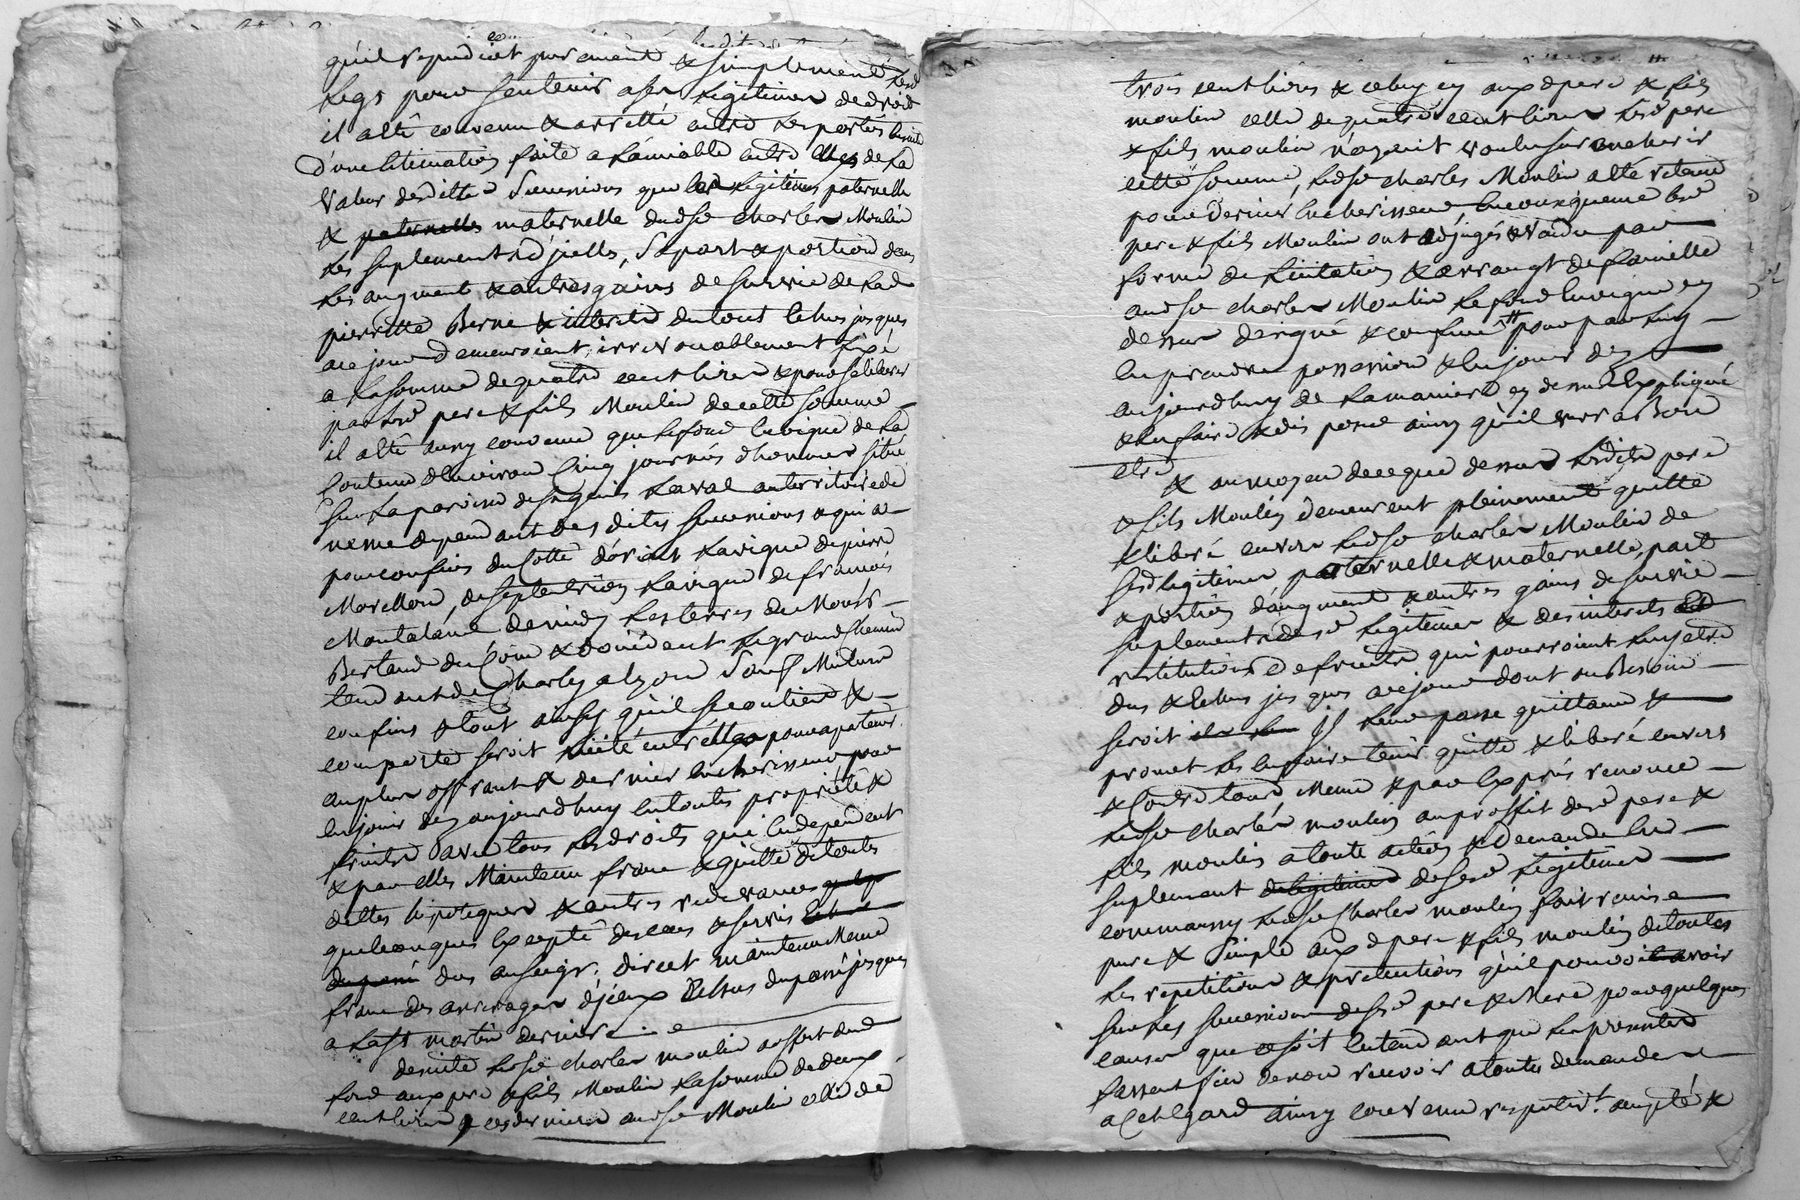 qu'il repudiet purement & simplement led.
Legs pour s'entenir a ses Legitimes de droit
il a été convenu & arretté entre les parties ensuitte
d'une Estimation faite a L'amiable entre elles de la
valeur desdittes Successions que les Legitimes paternelle
& maternelle dud. sr Charles Moulin
Les suplements d'jcelles, Sa part & portion dans
Les augments & autres gains de survie de lad.
pierrette Berne & interets du tout Echus jusques
a ce jour demeuroient irrevocablement fixé
a La somme de quatre cent livres & pour se liberer
par led. pere & fils Moulin de cette somme
il a été aussy convenu que le fond en vigne de La
Contenue d'Environ Cinq journées d'hommes situé
Sur La paroisse de St genis Laval au territoire de
meme dependant desdites successions & qui a
pour confins du Cotté d'orient La vigne de pierre
Morellon, de septentrion La vigne de francois
Montaland de midy Les terres du Mons.r
Bertaud du Coin & d'occident Le grand Chemin
tendant de Charly a Lyon Sauf Meilleurs
confins & tout ainsy qu'il se contient &
comporte seroit Licité entr'elles pour apartenir
au plus offrant & dernier Encherisseur pour
En jouir des aujourdhuy En toute propriété &
fruits avec tous Les droits qui En dependent
& par elles Maintenu franc & quitte de toutes
dettes hipoteques & autres redevances
quelconques Excepté des cens & servis
dus au seigr. Direct maintenu Meme
franc des arrerages d'jceux Echus du passé jusques
a La St martin derniere
de suitte led. sr Charles moulin a offert dud.
fond aux pere & fils Moulin La somme de deux
cent livres, ces derniers aud. sr Moulin celle de
trois cent livres & celuy cy auxd. pere & fils
moulin celle de quatre cent livres Lesd. pere
& fils moulin n'ayant voulu sur encherir
cette somme, led. sr charles Moulin a été retenu
pour dernier Encherisseur En consequence lesd.
pere & fils Moulin ont adjugés & vendu par
forme de Licitation & arrangt. de famille
aud. sr charles Moulin Le fond En vigne cy
dessus designé & confiné pour par luy
En prendre possession & En jouir des
aujourdhuy de La maniere cy dessus Expliqué
& En faire & dis poser ainsy qu'il verra a Bon
etre
& au moyen de ce que dessus Lesdits pere
& fils Moulin demeurent pleinement quitte
& liberé envers led. sr charles Moulin de
sesd. legitimes paternelle & maternelle, part
& portion d'augment & autres gains de survie
suplements desd. Legitimes & des interets
restitutions de fruits qui pourroient Luy etre
dus & Echus jusques a ce jour dont au Besoin
seroit Jl Leur passe quittance &
promet Les En faire tenir quitte & liberé envers
& Contre tous Meme & par Exprés renonce
led. sr charles moulin au proffit desd. pere &
fils moulin a toute action & Demande En
suplement de sesd. Legitimes
comm'aussy led. sr Charles moulin fait remise
pure & simple auxd. pere & fils moulin de toutes
Les repetitions & pretentions qu'il pouvoit avoir
sur Les successions de sesd. pere & Mere pour quelques
causes que ce soit Entendant que Les presentes
Lassent fin de non recevoir a toutes demandes
a Cet Egard Ainsy convenu respectivt. accepté &